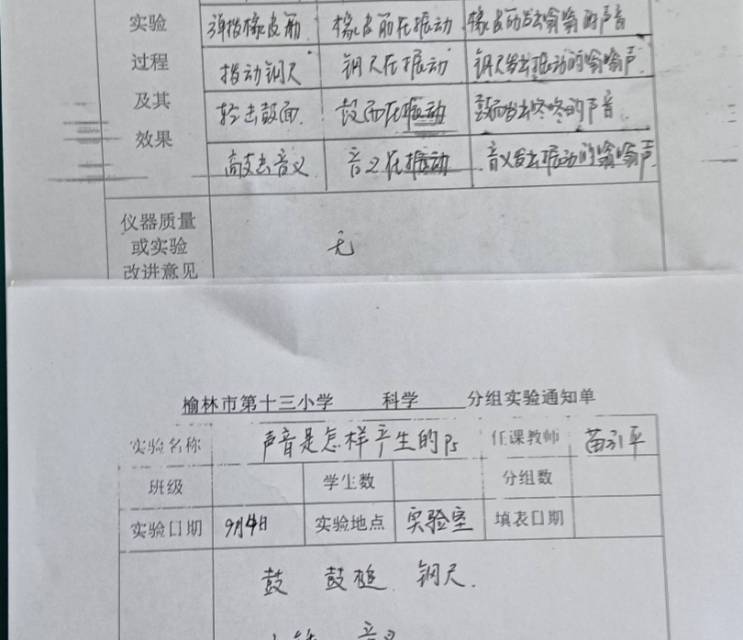 实验 弹拨橡皮筋 橡皮筋在振动 橡皮筋发出嗡嗡的声音
过程 拨动钢尺 钢尺在振动 钢尺发出振动的嗡嗡声
及其 轻击鼓面 鼓面在振动 鼓面发出咚咚的声音
效果 敲击音叉 音叉在振动 音叉发出振动的嗡嗡声
仪器质量
或实验 无
改进意见
榆林市第十三小学 科学 分组实验通知单
实验名称 声音是怎样产生的 任课教师
班级 学生数 分组数
实验日期 9月4日 实验地点 实验室 填表日期
鼓 鼓槌 钢尺
音叉